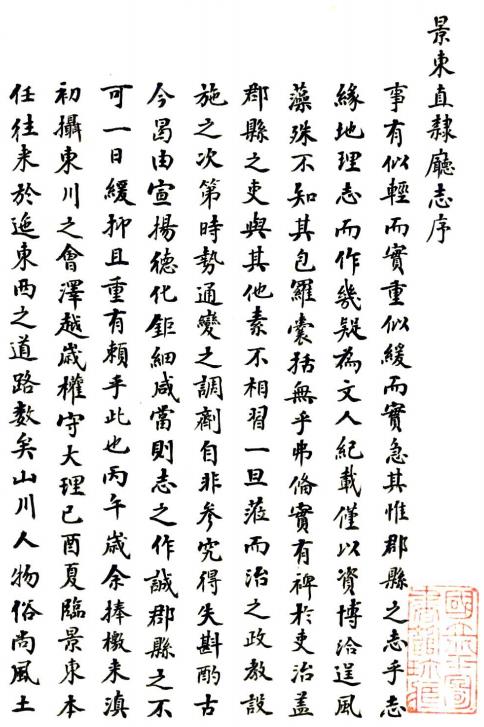 景東直隸廳志序
事有似輕而實重似緩而實急其惟郡縣之志乎志
緣地理志而作幾疑為文人紀載僅以資博洽逞風
藻殊不知其包羅囊括無乎弗備實有裨於吏治蓋
郡縣之吏與其他素不相習一旦蒞而治之政教設
施之次第時勢通變之調劑自非參究得失斟酌古
今曷由宣揚德化鉅細咸當則志之作誠郡縣之不
可一日緩抑且重有賴乎此也丙午歲余捧檄来滇
初攝東川之會澤越歲權守大理己酉夏臨景東本
任往来於迤東西之道路數矣山川人物俗尚風土